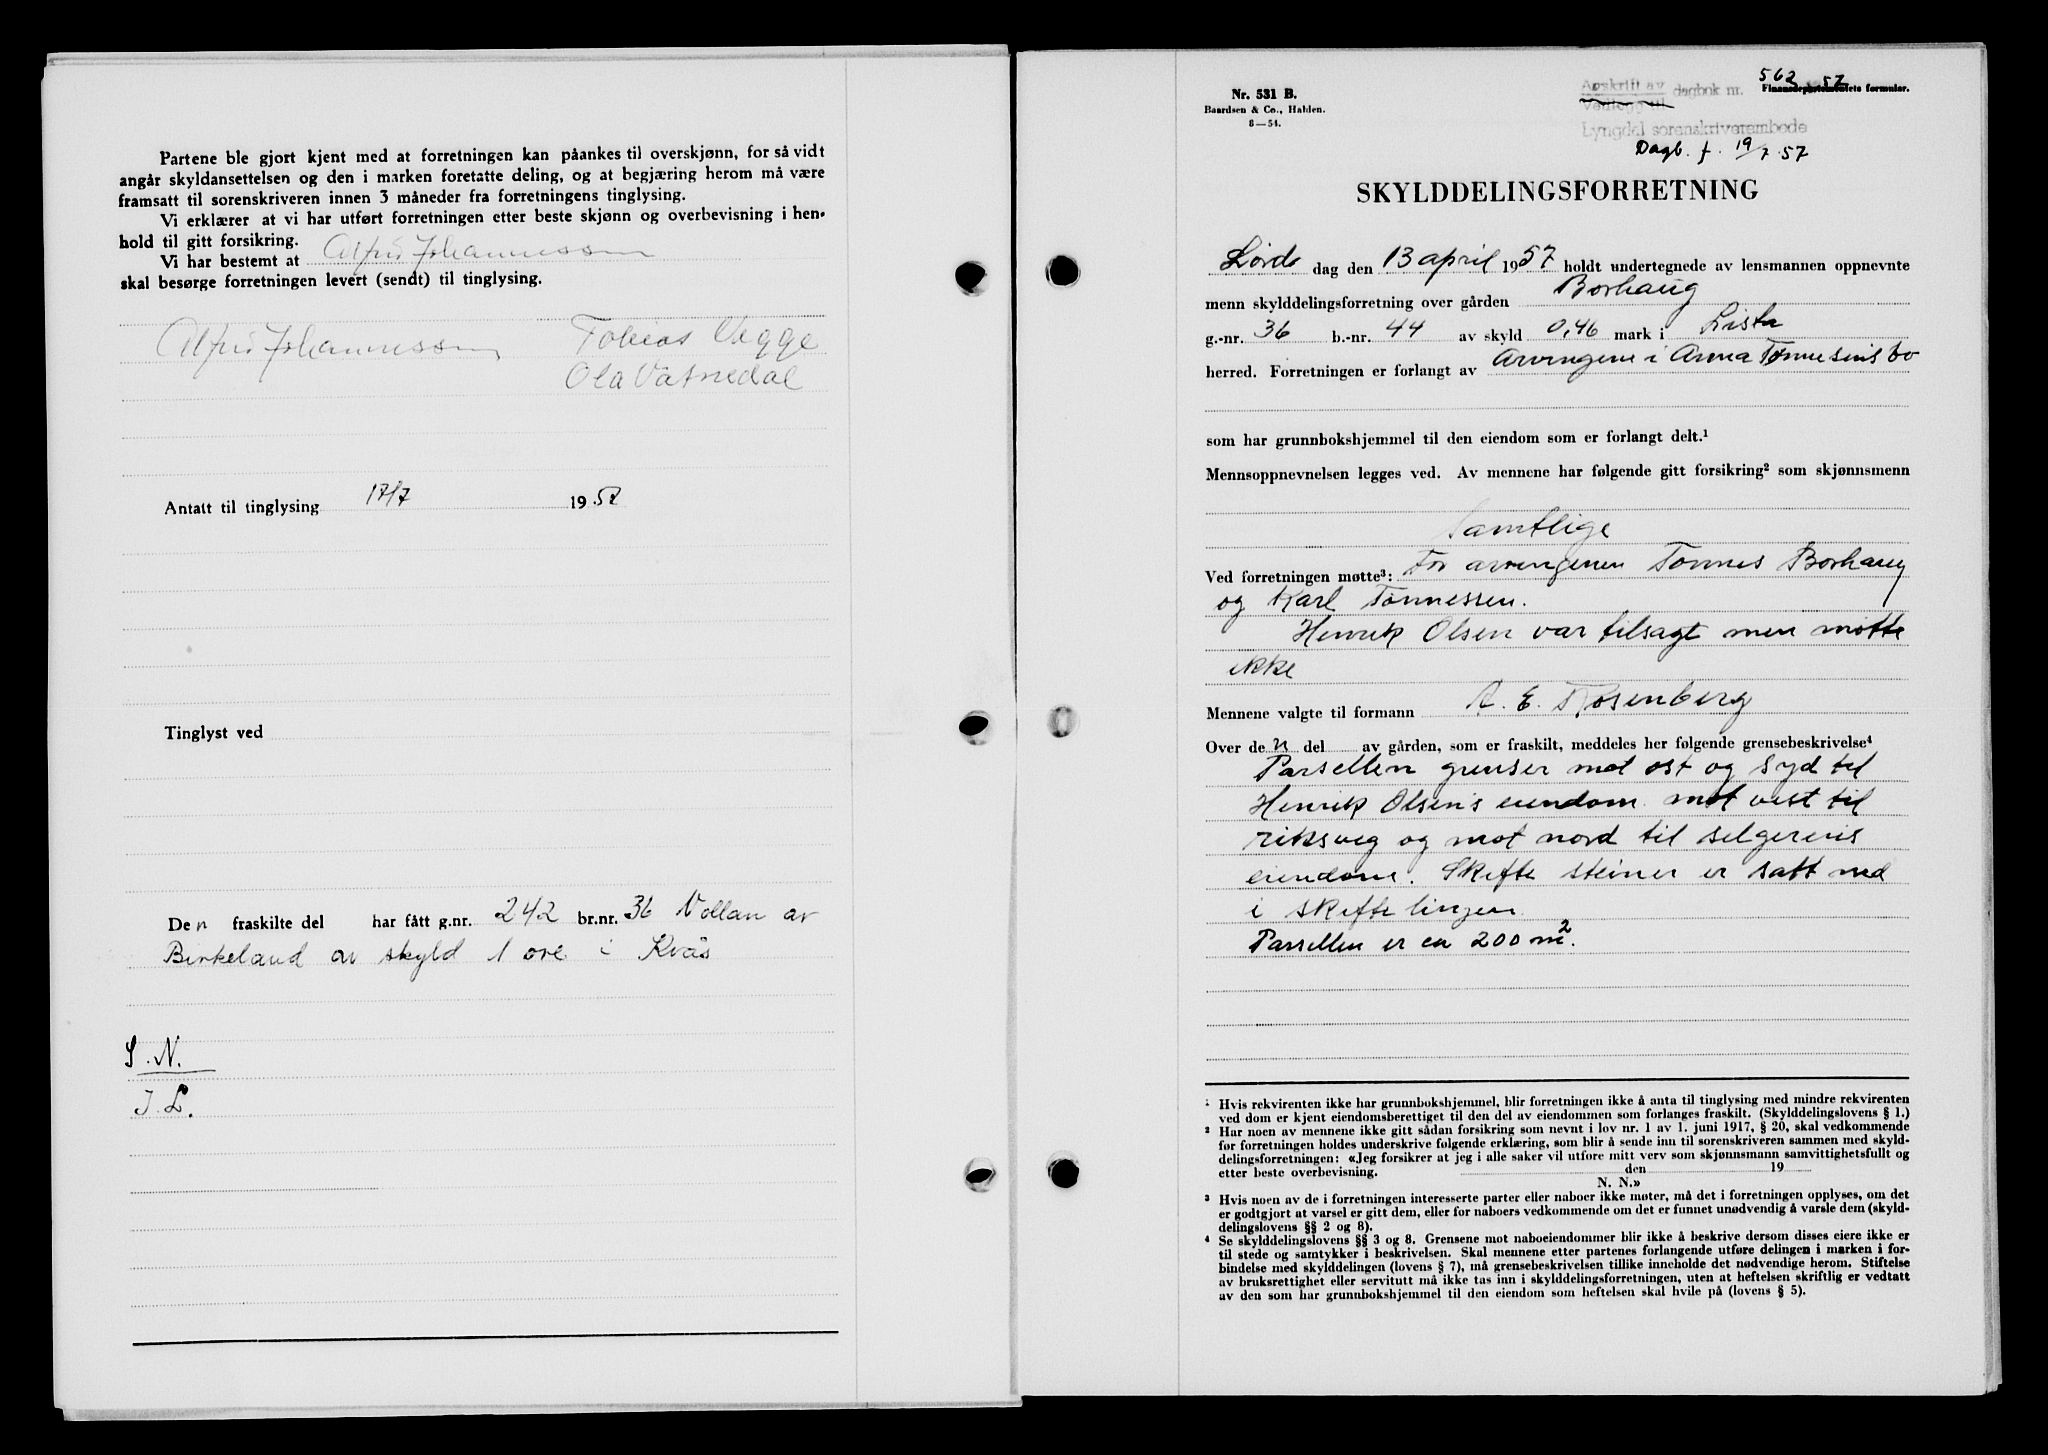 Partene ble gjort kjent med at forretningen kan påankes til overskjønn, for så vidt
angår skyldansettelsen og den i marken foretatte deling, og at begjæring herom må være
framsatt til sorenskriveren innen 3 måneder fra forretningens tinglysing.
Vi erklærer at vi har utført forretningen etter beste skjønn og overbevisning i hen-
hold til gitt forsikring.
Vi har bestemt at Alfred Johannessen
skal besørge forretningen levert (sendt) til tinglysing.
Alfred Johannessen Tobias Vegge
Ola Vatnedal
Antatt til tinglysing 17/7 1957
Tinglyst ved
Den fraskilte del har fått g.nr. 242 br.nr. 36 Vollan av
Birkeland av skyld 1 øre i Kvås
S.N.
J.L.
Nr. 531 B.
Baardsen & Co., Halden.
8—54.
562 57
Avskrift av dagbok nr. Finansdepartementets formular.
Vedlegg til
Lyngdal sorenskriverembede
Dagb. f. 19/7 57
SKYLDDELINGSFORRETNING
Lørdag den 13 april 1957 holdt undertegnede av lensmannen oppnevnte
menn skylddelingsforretning over gården Borhaug
g.-nr. 36 b.-nr. 44 av skyld 0,46 mark i Lista
herred. Forretningen er forlangt av Arvingene i Anna Tønnesens bo
som har grunnbokshjemmel til den eiendom som er forlangt delt.¹
Mennsoppnevnelsen legges ved. Av mennene har følgende gitt forsikring² som skjønnsmenn
Samtlige
Ved forretningen møtte³: For arvingenen Tønnes Borhaug
og Karl Tønnessen.
Henrik Olsen var tilsagt men møtte
ikke
Mennene valgte til formann A. E. Rosenberg
Over den del av gården, som er fraskilt, meddeles her følgende grensebeskrivelse⁴
Parsellen grenser mot øst og syd til
Henrik Olsen's eiendom mot vest til
riksveg og mot nord til selgerens
eiendom. Skifte steiner er satt ned
i skifte lingen
Parsellen er ca 200 m².
¹ Hvis rekvirenten ikke har grunnbokshjemmel, blir forretningen ikke å anta til tinglysing med mindre rekvirenten
ved dom er kjent eiendomsberettiget til den del av eiendommen som forlanges fraskilt. (Skylddelingslovens § 1.)
² Har noen av mennene ikke gitt sådan forsikring som nevnt i lov nr. 1 av 1. juni 1917, § 20, skal vedkommende
før forretningen holdes underskrive følgende erklæring, som blir å sende inn til sorenskriveren sammen med skyld-
delingsforretningen: «Jeg forsikrer at jeg i alle saker vil utføre mitt verv som skjønnsmann samvittighetsfullt og
etter beste overbevisning. den 19
N. N.»
³ Hvis noen av de i forretningen interesserte parter eller naboer ikke møter, må det i forretningen opplyses, om det
er godtgjort at varsel er gitt dem, eller for naboers vedkommende om det er funnet unødvendig å varsle dem (skyld-
delingslovens §§ 2 og 8).
⁴ Se skylddelingslovens §§ 3 og 8. Grensene mot naboeiendommer blir ikke å beskrive dersom disses eiere ikke er
til stede og samtykker i beskrivelsen. Skal mennene etter partenes forlangende utføre delingen i marken i for-
bindelse med skylddelingen (lovens § 7), må grensebeskrivelsen tillike inneholde det nødvendige herom. Stiftelse
av bruksrettighet eller servitutt må ikke tas inn i skylddelingsforretningen, uten at heftelsen skriftlig er vedtatt
av den som har grunnbokshjemmel til den eiendom som heftelsen skal hvile på (lovens § 5).